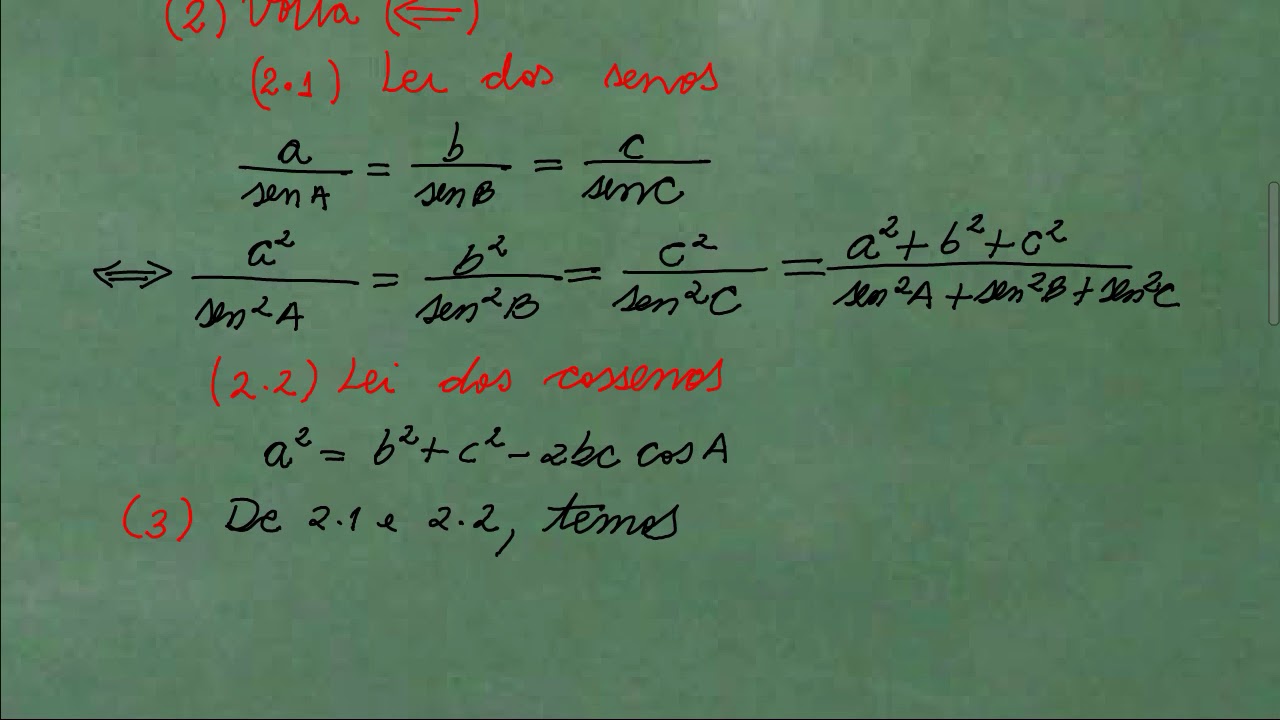 (2) Volta (⇐)
(2.1) Lei dos senos
a/senA = b/senB = c/senC
⇔ a²/sen²A = b²/sen²B = c²/sen²C = (a²+b²+c²)/(sen²A+sen²B+sen²C)
(2.2) Lei dos cossenos
a² = b²+c²-2bc cosA
(3) De 2.1 e 2.2, temos